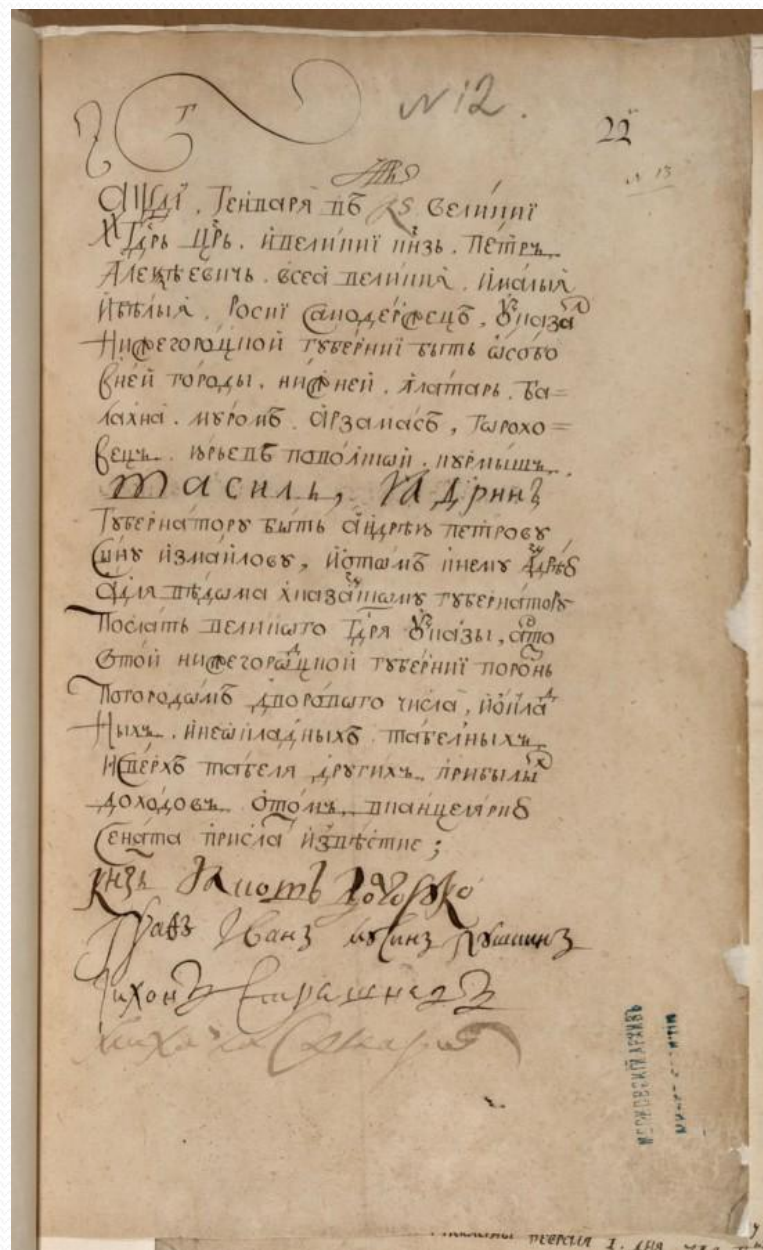 N 12.
22
N 13
҂аѱді, Генваря въ кѕ великиї
Гдрь црь. и великиї кнзь. Петръ
Алеѯѣевичь. всеа великиѧ, и малыѧ
и бѣлыѧ. Росиї самодержецъ, ꙋказа
Нижегороцкой губерниї быть ѡсобо
в ней городы. нижней. алатарь. ба=
лахна. муромъ. арзамасъ, горохо=
вецъ. юрьевъ поволской. курмышъ.
василь, ядринъ
губернатору быть андрѣю петрову
сыну измаилову, и ѡ томъ к нему
а для вѣдома к казанскому губернатору
послать великого гдря ꙋказы, а что
в той нижегороцкой губерниї порознь
по городомъ дворового числа, и ѡкла
ных. и неѡкладныхъ табелныхъ
и сверхъ табеля других. прибылы
доходовъ ѡ томъ в канцелярию
сената присла извѣстие;
кнзь Якотъ Долгоруко
Графъ Иванъ мусинъ пушкинъ
Тихонъ Стрешневъ
МОСКОВСКІЙ АРХИВЪ